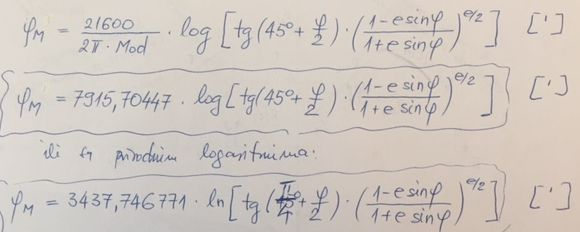 φM = 21600 / 2π · Mod · log [ tg (45° + φ/2) · ( 1 - e sinφ / 1 + e sinφ )^e/2 ] [ ' ]
φM = 7915,70447 · log [ tg (45° + φ/2) · ( 1 - e sinφ / 1 + e sinφ )^e/2 ] [ ' ]
ili s prirodnim logaritmima:
φM = 3437,746771 · ln [ tg ( π/4 + φ/2 ) · ( 1 - e sinφ / 1 + e sinφ )^e/2 ] [ ' ]